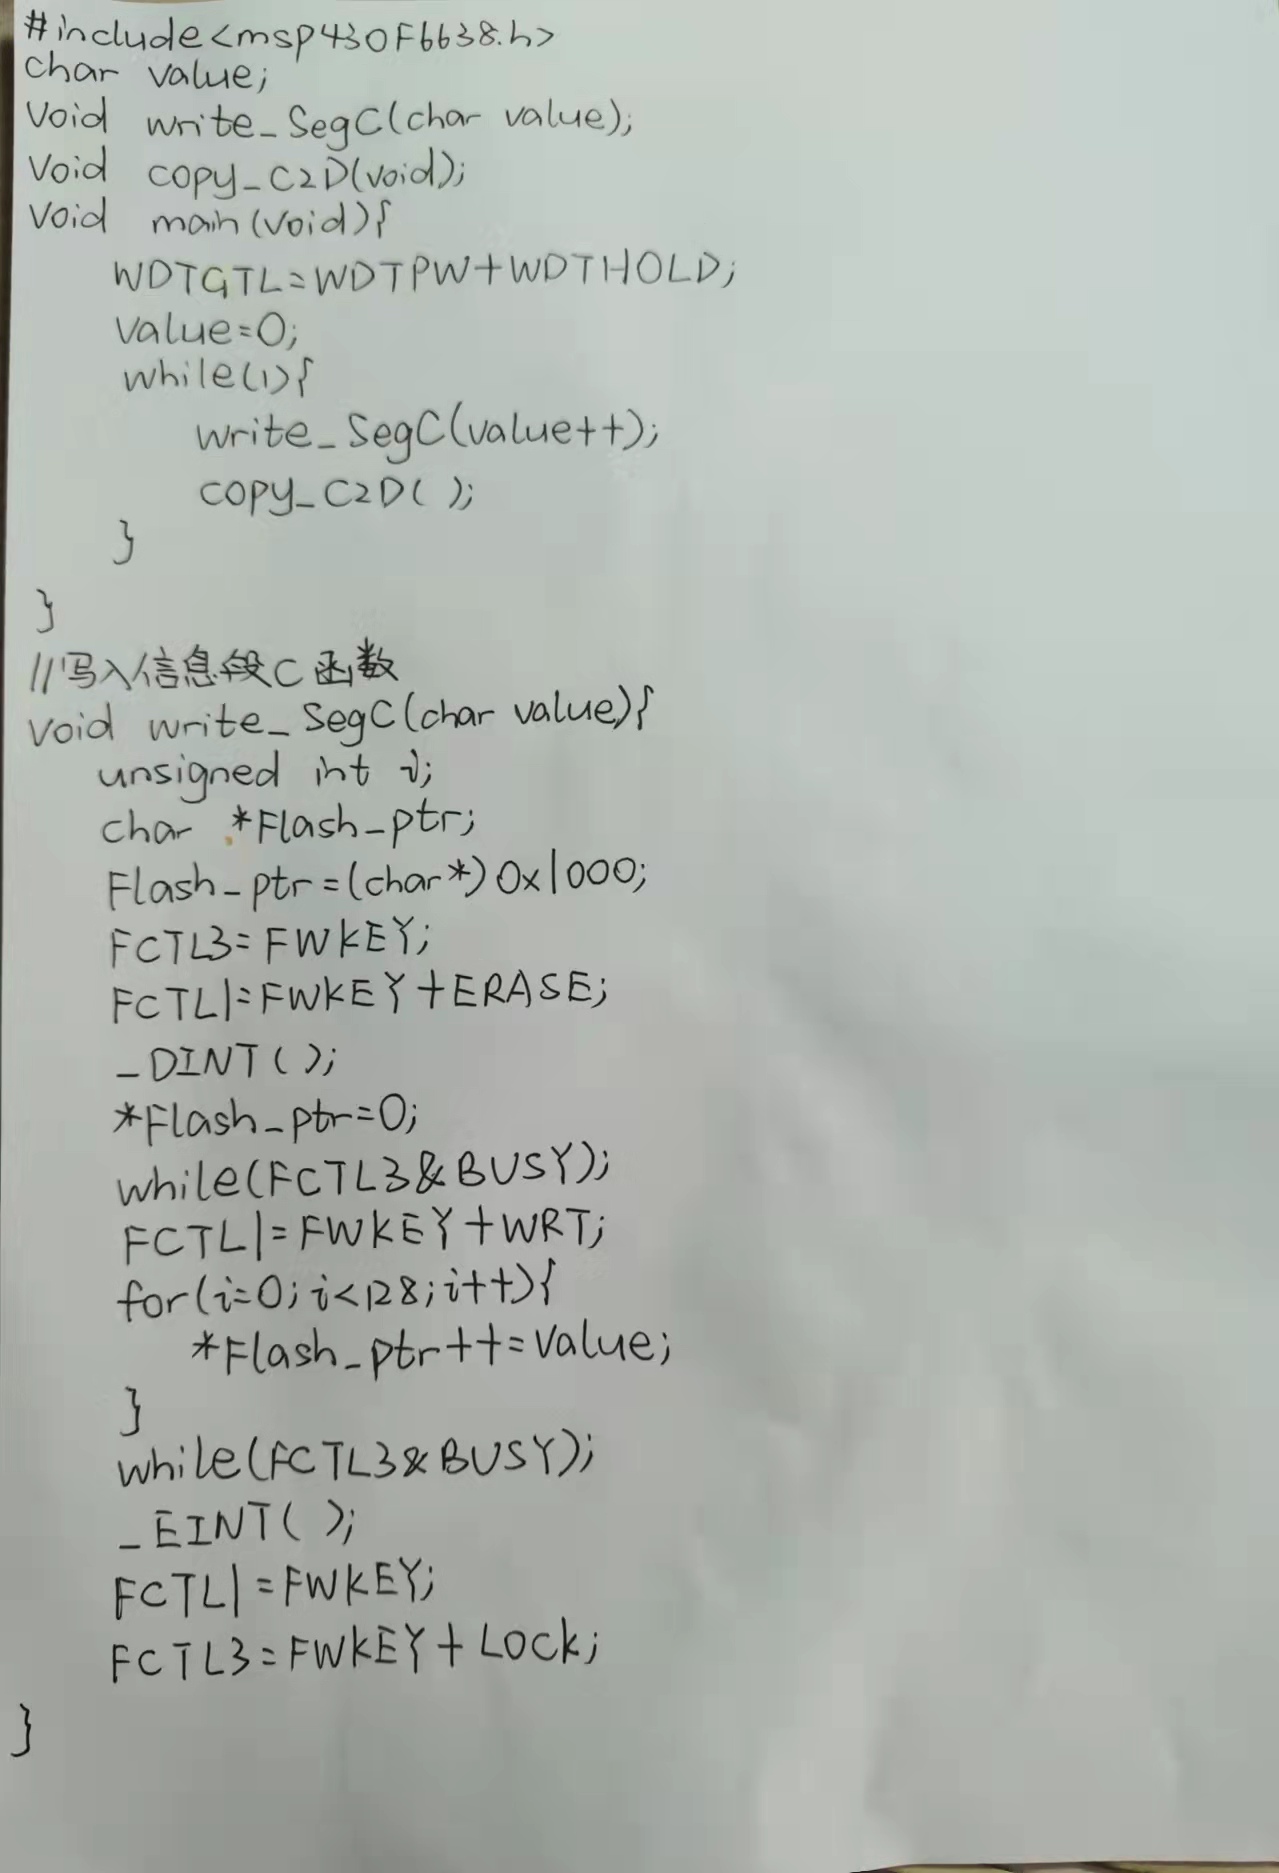 #include<msp430F6638.h>
char value;
void write_SegC(char value);
void copy_C2D(void);
void main(void){
WDTGTL=WDTPW+WDTHOLD;
value=0;
while(1){
write_SegC(value++);
copy_C2D( );
}
}
//写入信息段C函数
void write_SegC(char value){
unsigned int i;
char *Flash_ptr;
Flash_ptr=(char*)0x1000;
FCTL3=FWKEY;
FCTL1=FWKEY+ERASE;
_DINT( );
*Flash_ptr=0;
while(FCTL3&BUSY);
FCTL1=FWKEY+WRT;
for(i=0;i<128;i++){
*Flash_ptr++=value;
}
while(FCTL3&BUSY);
_EINT( );
FCTL1=FWKEY;
FCTL3=FWKEY+LOCK;
}